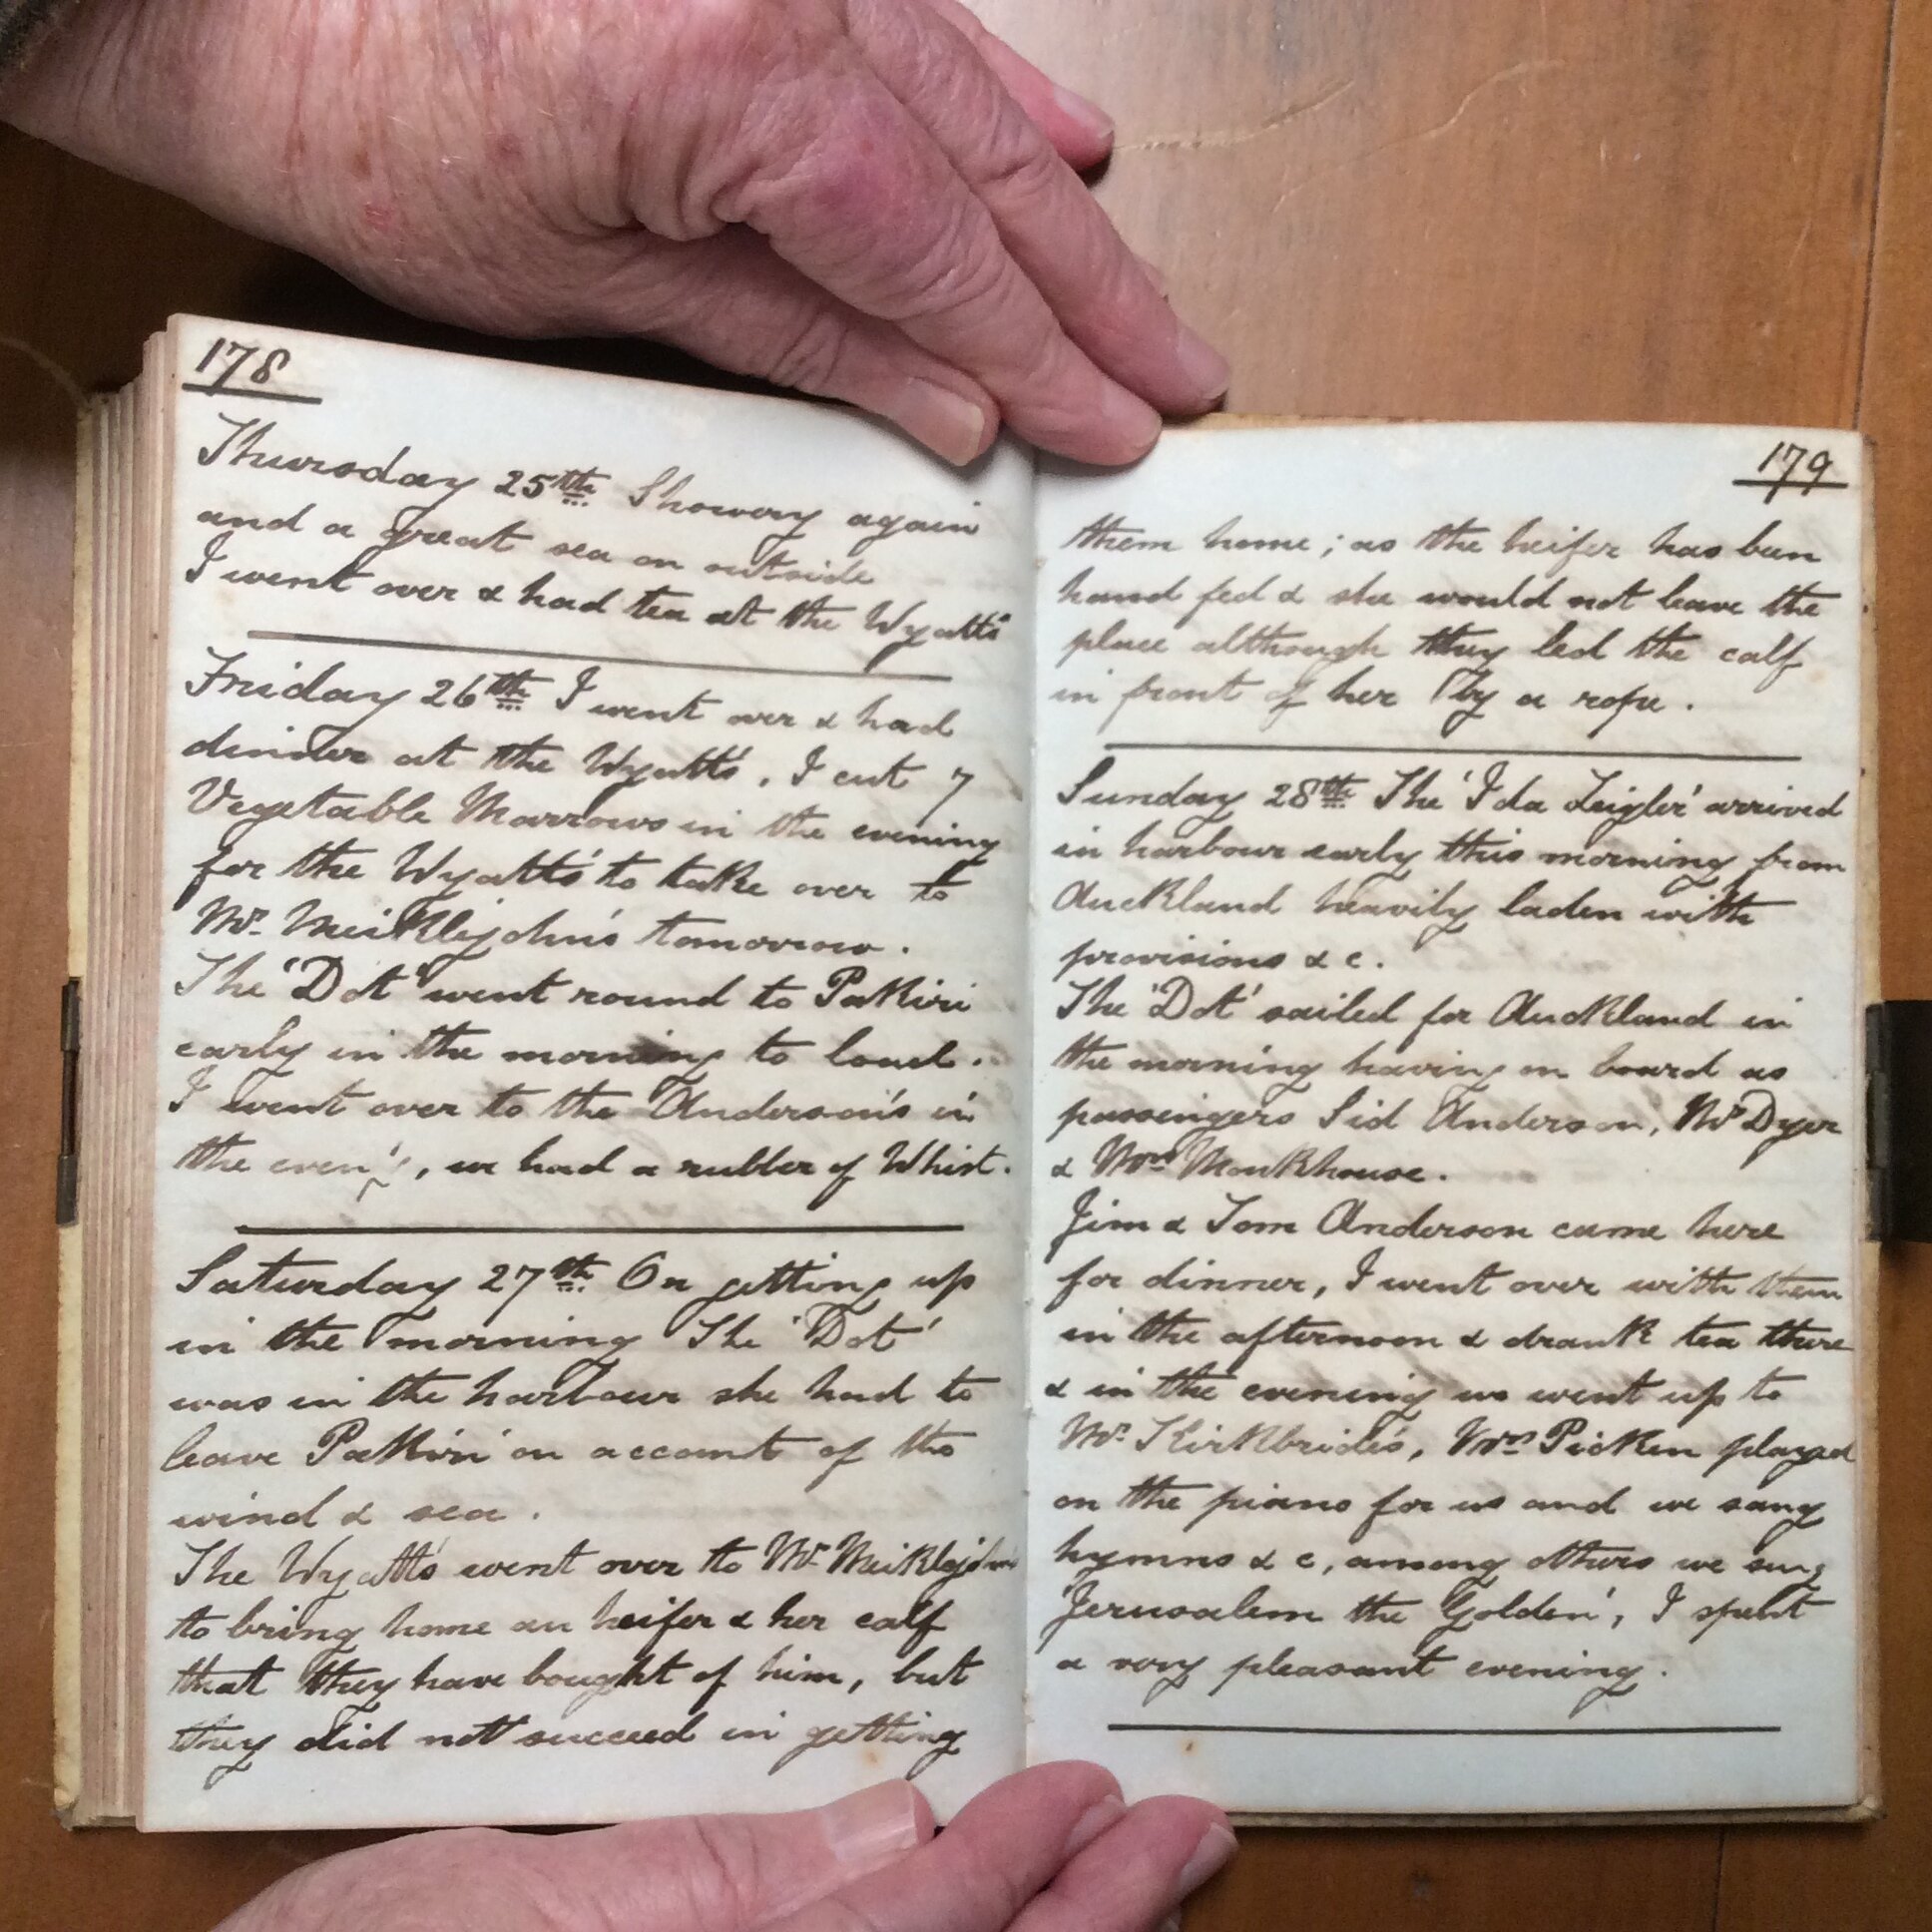 178
Thursday 25th Showery again
and a great sea on outside
I went over & had tea at the Wyatts'
Friday 26th I went over & had
dinner at the Wyatts', I cut 7
Vegetable Marrows in the evening
for the Wyatts' to take over to
Mr. Meiklejohn's tomorrow.
The 'Dot' went round to Pakiri
early in the morning to load.
I went over to the Anderson's in
the even'g, we had a rubber of Whist.
Saturday 27th On getting up
in the morning The 'Dot'
was in the harbour she had to
leave Pakiri on account of the
wind & sea.
The Wyatts' went over to Mr. Meiklejohn's
to bring home an heifer & her calf
that they have bought of him, but
they did not succeed in getting
179
them home; as the heifer has been
hand fed & she would not leave the
place although they led the calf
in front of her by a rope.
Sunday 28th The 'Ida Zeigler' arrived
in harbour early this morning from
Auckland heavily laden with
provisions & c.
The 'Dot' sailed for Auckland in
the morning having on board as
passengers Sid Anderson, Mr. Dyer
& Wm. Monkhouse.
Jim & Tom Anderson came here
for dinner, I went over with them
in the afternoon & drank tea there
& in the evening we went up to
Mr. Kirkbride's, Mrs. Picken played
on the piano for us and we sang
hymns & c, among others we sung
'Jerusalem the Golden', I spent
a very pleasant evening.